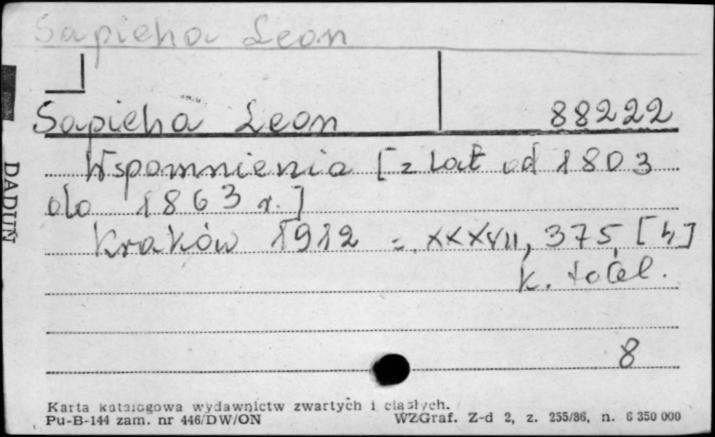 Sapieha Leon
Sapieha Leon 88222
Wspomnienia [z lat od 1803
do 1863 r.]
Kraków 1912 = XXXVII, 375, [4]
k. tabl.
8
DADUN
Karta katalogowa wydawnictw zwartych i ciągłych.
Pu-B-144 zam. nr 446/DW/ON WZGraf. Z-d 2, z. 255/86, n. 6 350 000